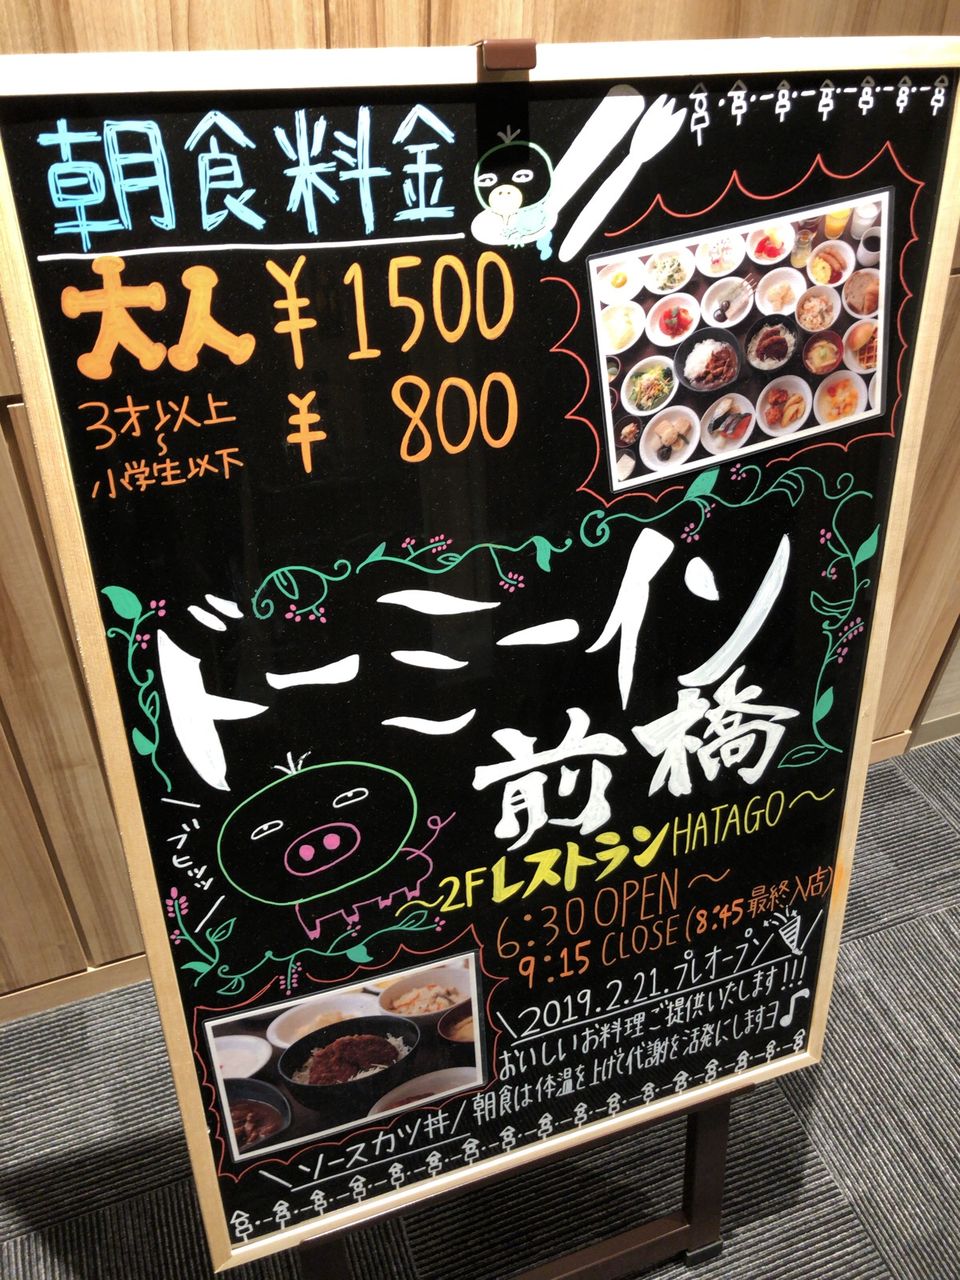 朝食料金
大人 ¥1500
3才以上 ¥ 800
〜
小学生以下
ドーミーイン
前橋
ブヒッッ
〜2FレストランHATAGO〜
6:30 OPEN〜
9:15 CLOSE(8:45最終入店)
\2019.2.21.プレオープン/
おいしいお料理ご提供いたします!!!
朝食は体温を上げて代謝を活発にしますヨ♪
\ソースカツ丼/